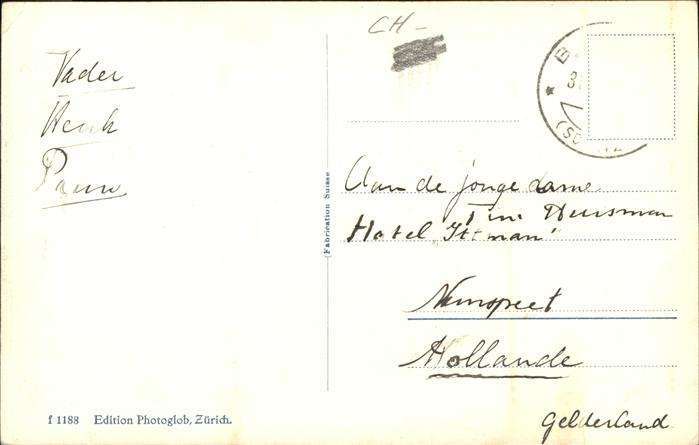 CH-
Vader
Henk
(SCHWEIZ
Aan de jonge dame
Tini Huisman
Hotel „Ittman"
Nunspeet
Hollande
Gelderland.
(Fabrication Suisse
f 1188 Edition Photoglob, Zürich.